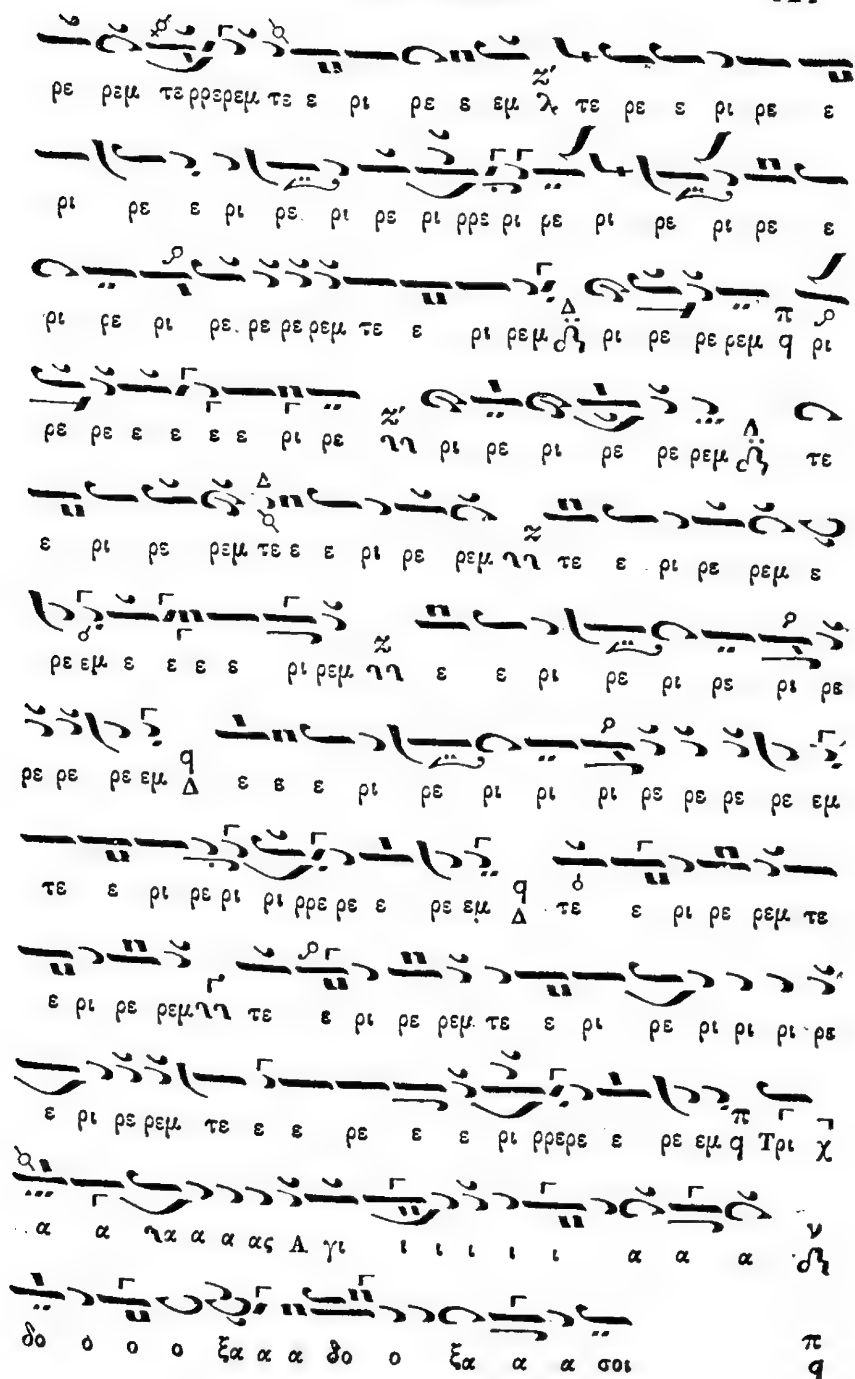 ρε ρεμ τε ρρερεμ τε ε ρι ρε ε εμ λ τε ρε ε ρι ρε ε
ρι ρε ε ρι ρε. ρι ρε ρι ρρε ρι ρε ρι ρε ρι ρε ε
ρι ρε ρι ρε. ρε ρε ρεμ τε ε ρι ρεμ Δ ρι ρε ρε ρεμ π q ρι
ρε ρε ε ε ε ε ρι ρε ρι ρε ρι ρε ρε ρεμ Δ τε
ε ρι ρε ρεμ τε ε ε ρι ρε ρεμ τε ε ρι ρε ρεμ ε
ρε εμ ε ε ε ε ρι ρεμ ε ε ρι ρε ρι ρε ρι ρε
ρε ρε ρε εμ q Δ ε ε ε ρι ρε ρι ρι ρι ρε ρε ρε ρε εμ
τε ε ρι ρε ρι ρι ρρε ρε ε ρε εμ q Δ τε ε ρι ρε ρεμ τε
ε ρι ρε ρεμ τε ε ρι ρε ρεμ τε ε ρι ρε ρι ρι ρι ρε
ε ρι ρε ρεμ τε ε ε ρε ε ε ρι ρρερε ε ρε εμ π q Τρι χ
α α α α α ας Α γι ι ι ι ι ι α α α ν
δο ο ο ο ξα α α δο ο ξα α α σοι π q